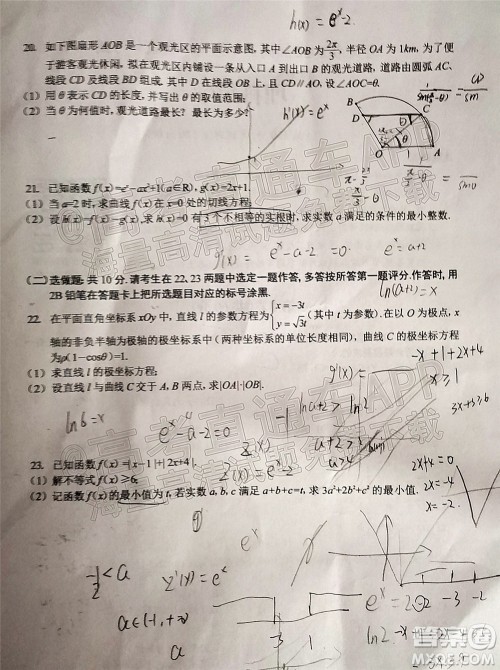 h(x) = e^x-2
20. 如下图扇形 AOB 是一个观光区的平面示意图, 其中∠AOB 为 2π/3, 半径 OA 为 1km, 为了便
于游客观光休闲, 拟在观光区内铺设一条从入口 A 到出口 B 的观光道路, 道路由圆弧 AC、
线段 CD 及线段 BD 组成, 其中 D 在线段 OB 上, 且 CD∥AO, 设∠AOC=θ.
(1) 用 θ 表示 CD 的长度, 并写出 θ 的取值范围;
(2) 当 θ 为何值时, 观光道路最长? 最长为多少?
h'(x) = e^x
B
C
D
θ
O
A
21. 已知函数 f(x)=e^x-ax²+1(a∈R), g(x)=2x+1.
(1) 当 a=2 时, 求曲线 f(x) 在 x=0 处的切线方程;
(2) 设 h(x)=f(x)-g(x), 求 h(x)=0 有 3 个不相等的实根时, 求实数 a 满足的条件的最小整数.
g'(x) = e^x-a-2=0
e^x=a+2
ln(a+2)=x
(二) 选做题: 共 10 分. 请考生在 22, 23 两题中选定一题作答, 多答按所答第一题评分. 作答时, 用
2B 铅笔在答题卡上把所选题目对应的标号涂黑.
22. 在平面直角坐标系 xOy 中, 直线 l 的参数方程为 { x=-3t y=√3t (其中 t 为参数). 在以 O 为极点, x
轴的非负半轴为极轴的极坐标系中 (两种坐标系的单位长度相同), 曲线 C 的极坐标方程
为 ρ(1-cosθ)=1.
(1) 求直线 l 的极坐标方程;
(2) 设直线 l 与曲线 C 交于 A, B 两点, 求|OA|·|OB|.
g'(x)=
-x+1+2x+4
x≥1
3x+3≥6
ln6=x
e^x-a-2=0
ln a+2 > ln2
a+2>
a>
23. 已知函数 f(x)=|x-1|+|2x+4|.
(1) 解不等式 f(x)≥6;
(2) 记函数 f(x) 的最小值为 t, 若实数 a, b, c 满足 a+b+c=t, 求 3a²+2b²+c² 的最小值.
Z(x)
Z'(x)=e^x-2
2x+4=0
2x=-4
x=-2
e^x
-1/2<a
Z'(x)=e^x
a∈(-1,+∞)
a
3
1
-2
-3
-2
高考直通车APP
海量高清试题免费下载
高考直通车APP
海量高清试题免费下载
答案圈